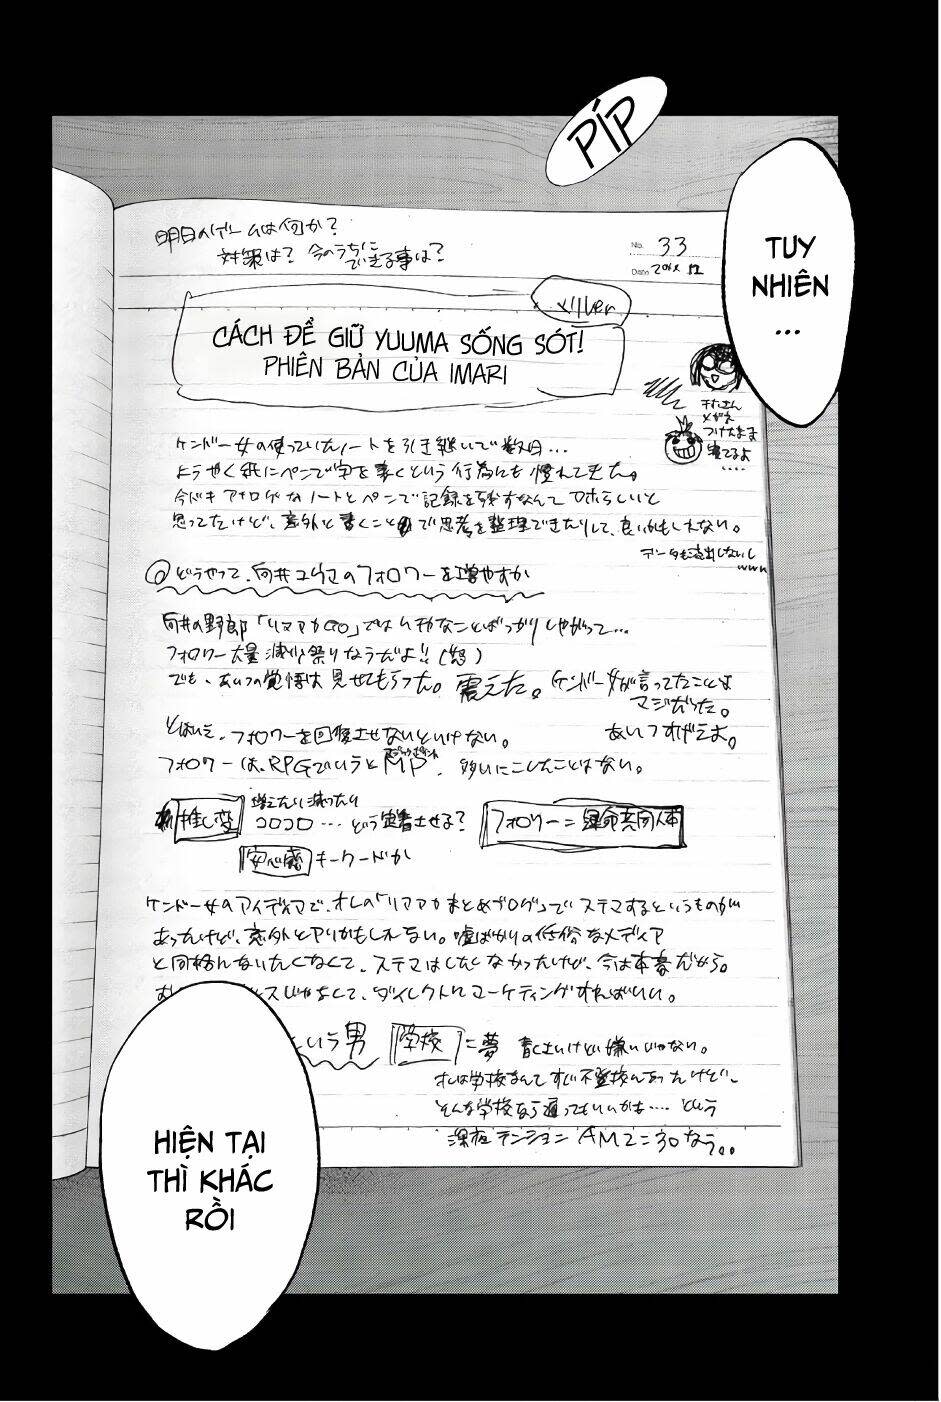 PÍP
TUY
NHIÊN
...
明日のゲームは何か？
対策は？ 今のうちに
できる事は？
No. 33
Date
CÁCH ĐỂ GIỮ YUUMA SỐNG SÓT!
PHIÊN BẢN CỦA IMARI
メガネ
つけたまま
寝てるよ
....
ケンドー女の使っていたノートを引き継いで数日…
ようやく紙にペンで字を書くという行為にも慣れてきた。
今どきアナログなノートとペンで記録を残すなんて
思ってたけど、意外と書くことで思考を整理できたりして、良いかもしれない。
データも流出しないし
www
◎どうやって、向井ユウマのフォロワーを増やすか
向井の野郎「リアアカGO」では
フォロワー大量減少祭りなうだよ!!(怒)
でも、あいつの覚悟は見せてもらった。震えた。ケンドー女が言ってたことは
マジだった。
あいつすげえよ。
とはいえ、フォロワーを回復させないといけない。
フォロワーは、RPGでいうとMP、多いにこしたことはない。
推し変 増えたり減ったり
コロコロ…どう定着させる？ フォロワー＝運命共同体
安心感 キーワードか
ケンドー女のアイディアで、オレの「リアアカまとめブログ」でステマするというものが
あったけど、意外とアリかもしれない。嘘ばかりの低俗なメディア
と同格になりたくなくて、ステマはしたくなかったけど、今は本音だから。
じゃなくて、ダイレクトにマーケティングすればいい。
という男 学校＝夢 青くさいけど嫌いじゃない。
オレは学校なんて 不登校 けど、
そんな学校なら通ってもいいかも…… という
深夜テンション AM2:30なう。。
HIỆN TẠI
THÌ KHÁC
RỒI